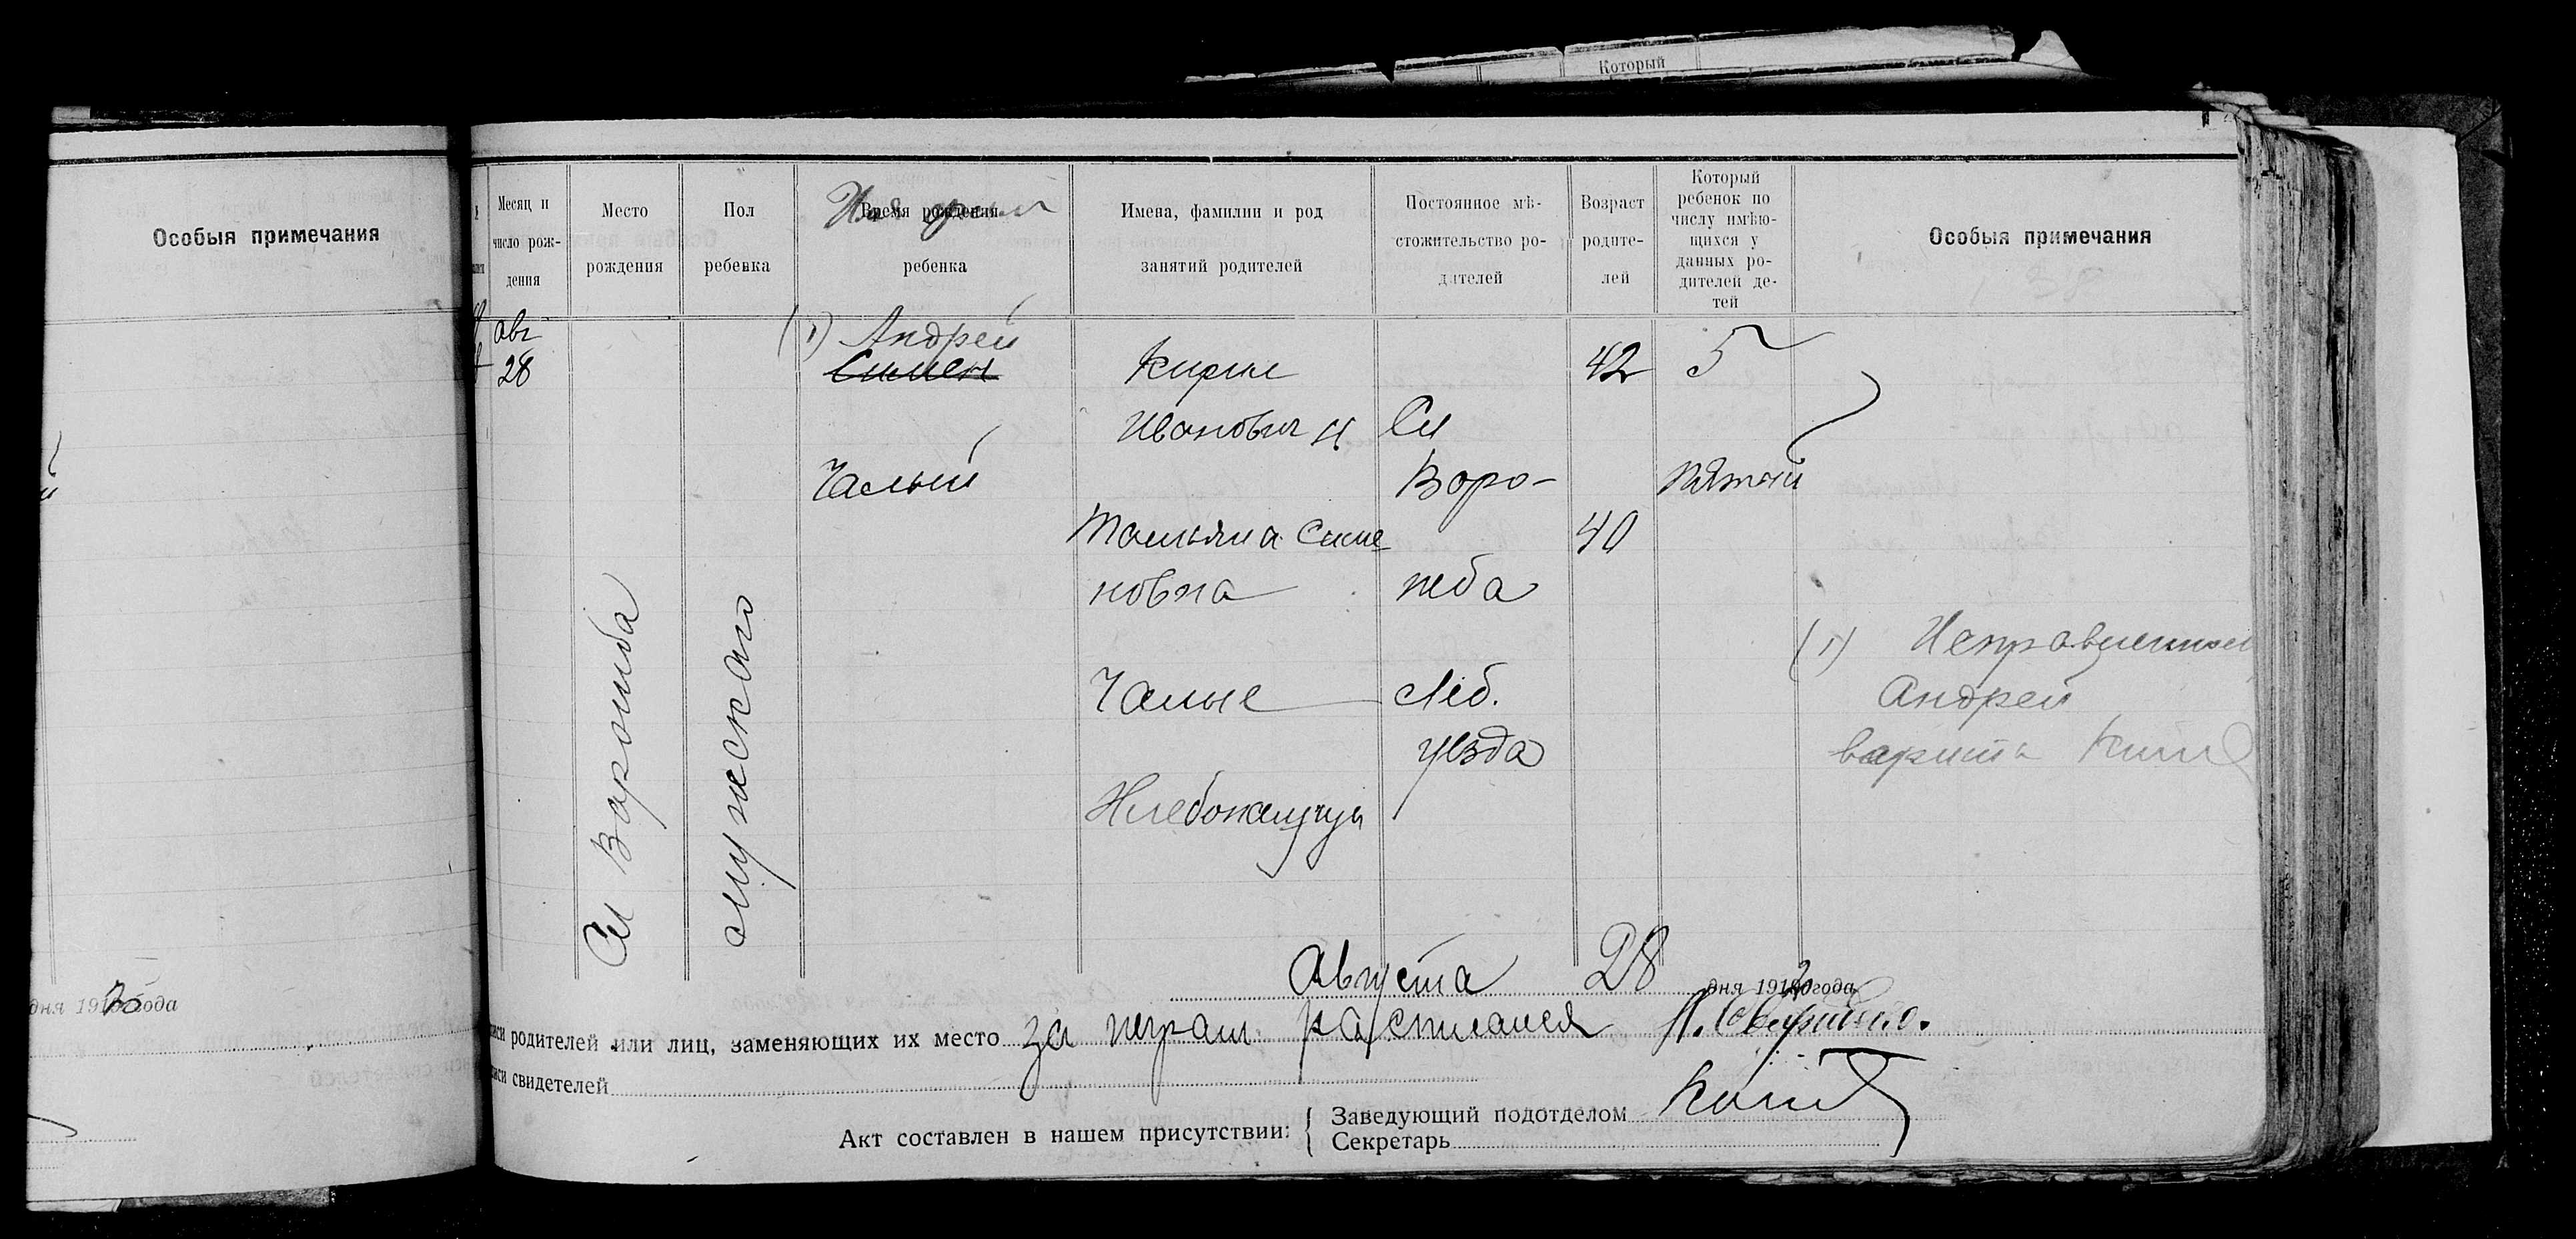 Который
Особыя примечания
дня 1920 года
Месяц и число рождения
Место рождения
Пол ребенка
Время рождения ребенка
Имена, фамилии и род занятий родителей
Постоянное мѣстожительство родителей
Возраст родителей
Который ребенок по числу имѣющихся у данных родителей детей
Особыя примечания
авг
28
Сл Ворожба
мужского
(1) Андрей
Симен
Чалый
Кирил
Иванович и
Татьяна Симе
новна
Чалые
Хлебопашцы
Сл
Воро-
жба
Леб.
уезда
42
40
5
пятый
(1) Исправленному
Андрей
верить
Августа 28 дня 1920 года
родителей или лиц, заменяющих их место за неграм росписался
свидетелей
Акт составлен в нашем присутствии:
Заведующий подотделом
Секретарь